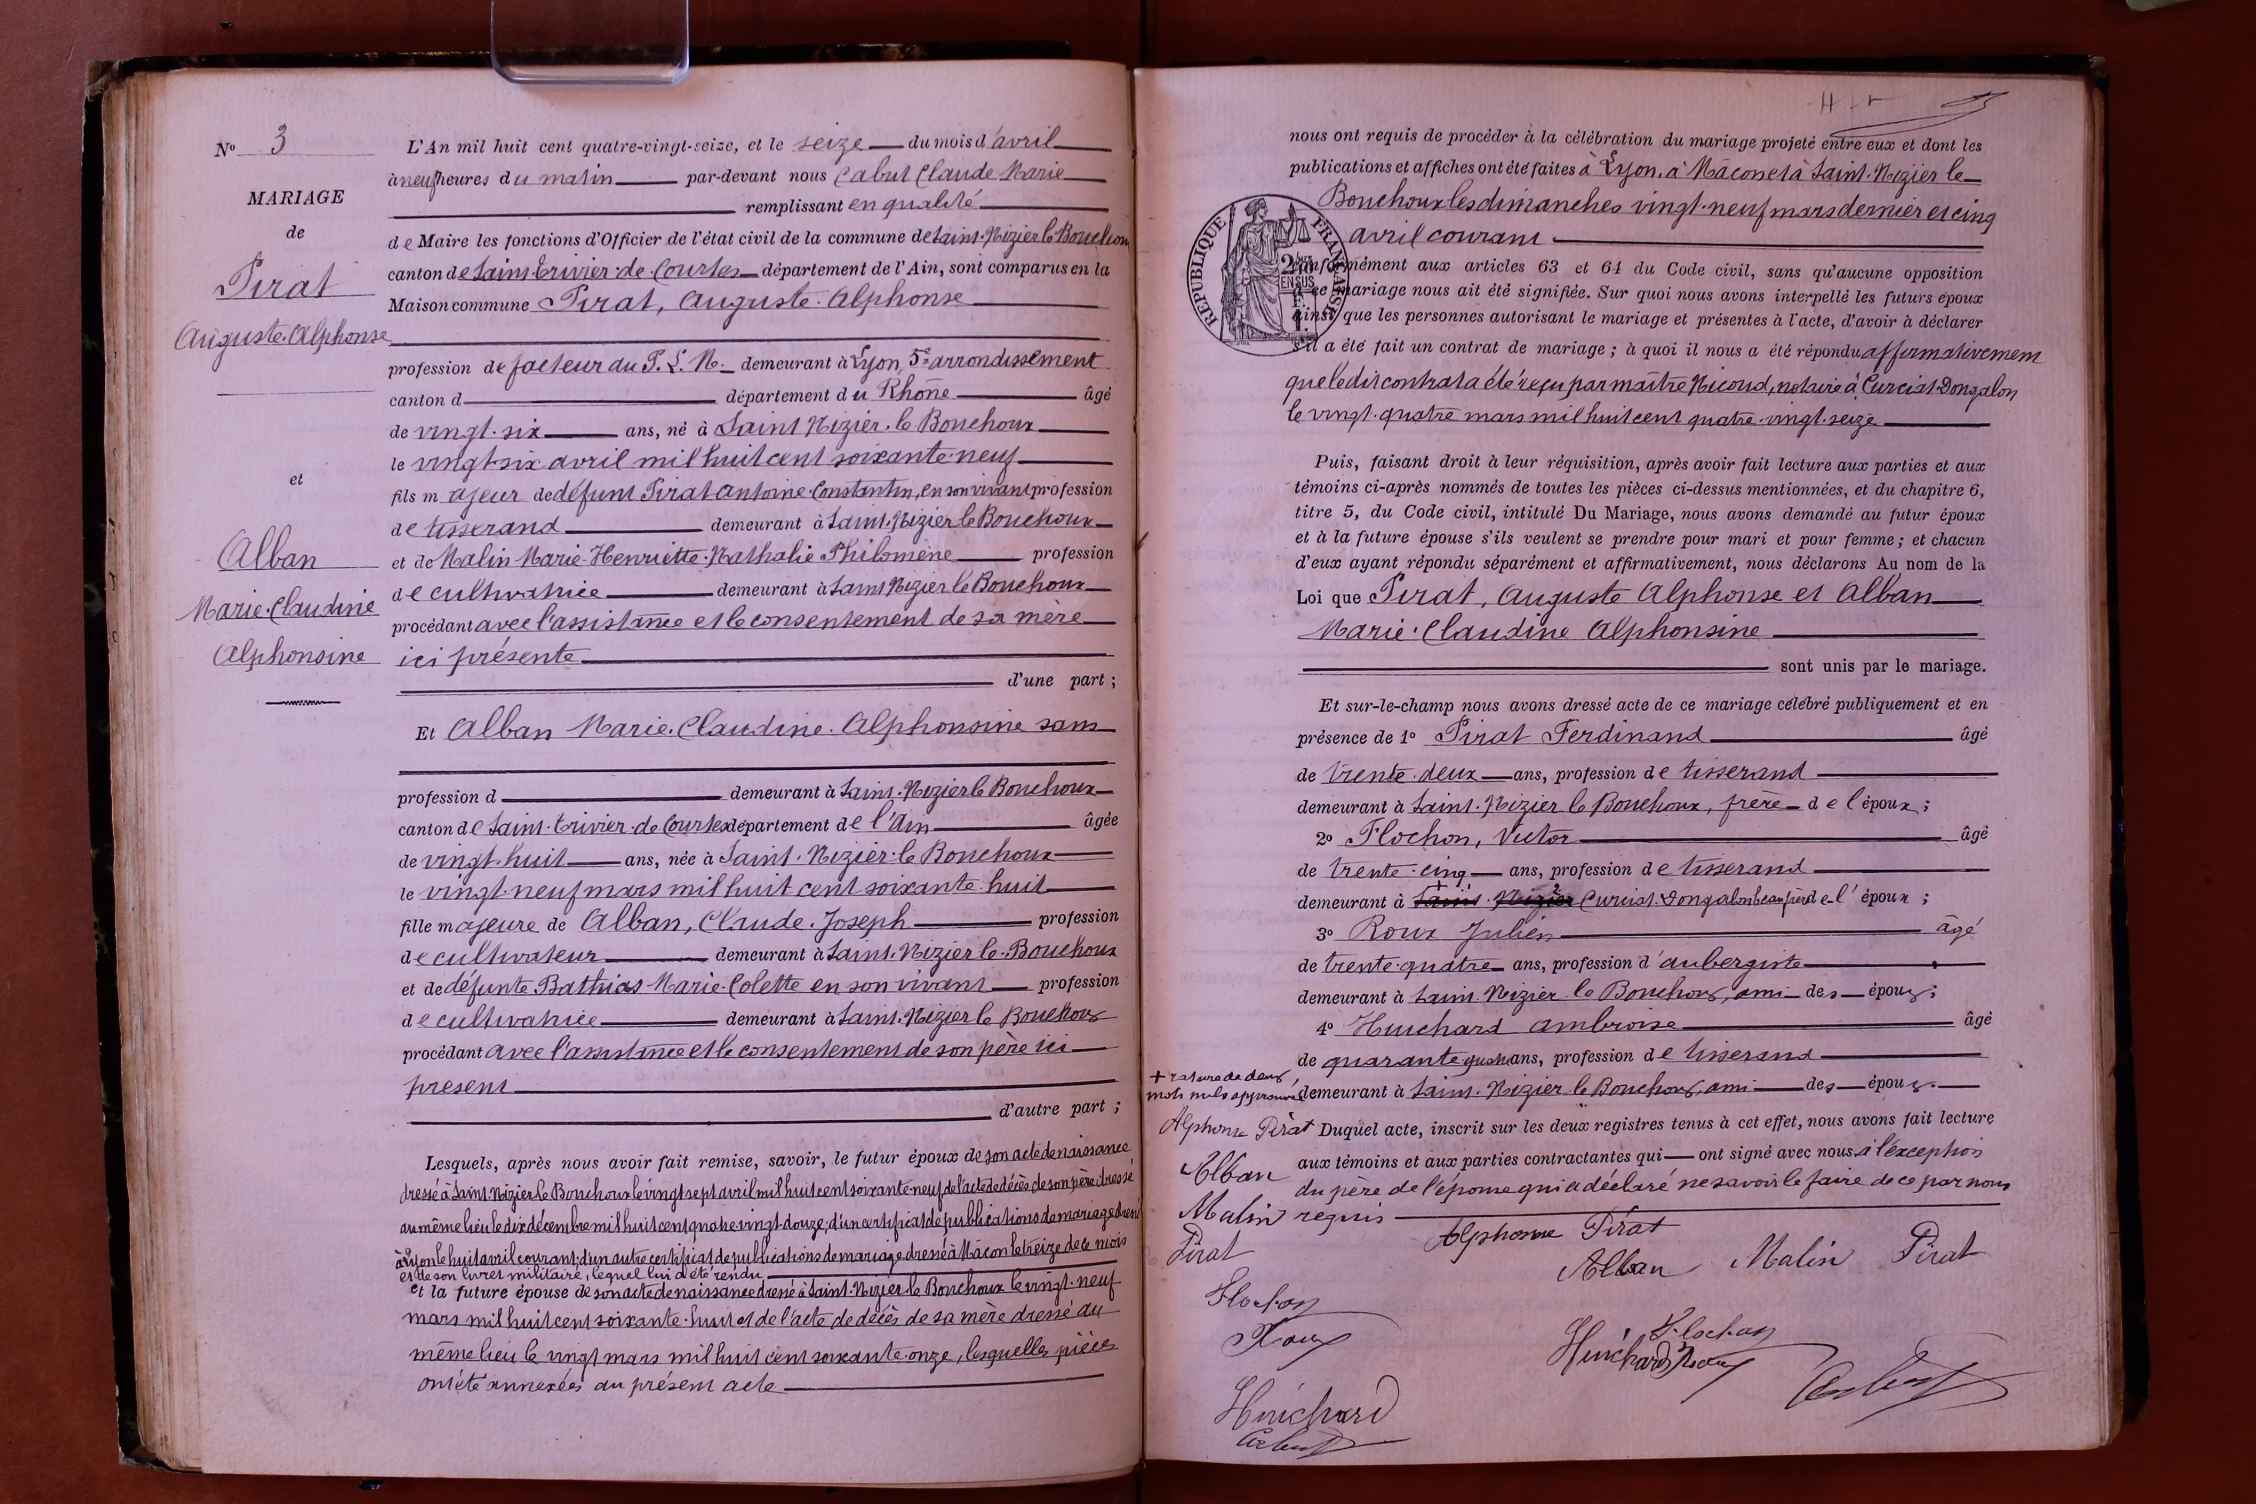 No 3
MARIAGE
de
Pirat
Auguste Alphonse
et
Alban
Marie Claudine
Alphonsine
L'An mil huit cent quatre-vingt-seize, et le seize du mois d'avril
à neuf heures du matin par-devant nous Cabut Claude Marie
remplissant en qualité
de Maire les fonctions d'Officier de l'état civil de la commune de Saint-Nizier le Bouchoux
canton de Saint-Trivier-de Courtes département de l'Ain, sont comparus en la
Maison commune Pirat, Auguste Alphonse
profession de facteur au P. L. M. demeurant à Lyon, 5e arrondissement
canton d département du Rhône âgé
de vingt-six ans, né à Saint Nizier-le Bouchoux
le vingt-six avril mil huit cent soixante-neuf
fils majeur de défunt Pirat Antoine Constantin, en son vivant profession
de tisserand demeurant à Saint-Nizier le Bouchoux
et de Malin Marie-Henriette-Nathalie Philomène profession
de cultivatrice demeurant à Saint Nizier le Bouchoux
procédant avec l'assistance et le consentement de sa mère
ici présente
d'une part ;
Et Alban Marie-Claudine-Alphonsine sans
profession d demeurant à Saint-Nizier le Bouchoux
canton de Saint-Trivier-de Courtes département de l'Ain âgée
de vingt-huit ans, née à Saint-Nizier-le Bouchoux
le vingt-neuf mars mil huit cent soixante-huit
fille majeure de Alban, Claude-Joseph profession
de cultivateur demeurant à Saint-Nizier-le-Bouchoux
et de défunte Bathias Marie-Colette en son vivant profession
de cultivatrice demeurant à Saint-Nizier le Bouchoux
procédant avec l'assistance et le consentement de son père ici
présent
d'autre part ;
Lesquels, après nous avoir fait remise, savoir, le futur époux de son acte de naissance
dressé à Saint-Nizier-le Bouchoux le vingt sept avril mil huit cent soixante-neuf, de l'acte de décès de son père dressé
au même lieu le dix décembre mil huit cent quatre vingt-douze, d'un certificat de publications de mariage dressé
à Lyon le huit avril courant, d'un autre certificat de publications de mariage dressé à Mâcon le treize de ce mois
et de son livret militaire, lequel lui a été rendu
et la future épouse de son acte de naissance dressé à Saint-Nizier-le Bouchoux le vingt-neuf
mars mil huit cent soixante-huit et de l'acte de décès de sa mère dressé au
même lieu le vingt mars mil huit cent soixante-onze, lesquelles pièces
ont été annexées au présent acte
nous ont requis de procéder à la célébration du mariage projeté entre eux et dont les
publications et affiches ont été faites à Lyon, à Mâcon et à Saint-Nizier le
Bouchoux les dimanches vingt-neuf mars dernier et cinq
avril courant
RÉPUBLIQUE FRANÇAISE
conformément aux articles 63 et 64 du Code civil, sans qu'aucune opposition
à ce mariage nous ait été signifiée. Sur quoi nous avons interpellé les futurs époux
ainsi que les personnes autorisant le mariage et présentes à l'acte, d'avoir à déclarer
s'il a été fait un contrat de mariage ; à quoi il nous a été répondu affirmativement
que ledit contrat a été reçu par maître Nicoud, notaire à Curciat-Dongalon
le vingt-quatre mars mil huit cent quatre-vingt-seize
Puis, faisant droit à leur réquisition, après avoir fait lecture aux parties et aux
témoins ci-après nommés de toutes les pièces ci-dessus mentionnées, et du chapitre 6,
titre 5, du Code civil, intitulé Du Mariage, nous avons demandé au futur époux
et à la future épouse s'ils veulent se prendre pour mari et pour femme ; et chacun
d'eux ayant répondu séparément et affirmativement, nous déclarons Au nom de la
Loi que Pirat, Auguste Alphonse et Alban
Marie-Claudine Alphonsine
sont unis par le mariage.
Et sur-le-champ nous avons dressé acte de ce mariage célébré publiquement et en
présence de 1o Pirat Ferdinand âgé
de trente-deux ans, profession de tisserand
demeurant à Saint-Nizier le Bouchoux, frère de l'époux ;
2o Flochon, Victor âgé
de trente-cinq ans, profession de tisserand
demeurant à Saint-Nizier Curciat-Dongalon beau frère de l'époux ;
3o Roux Julien âgé
de trente-quatre ans, profession d'aubergiste
demeurant à Saint-Nizier le Bouchoux, ami des époux ;
4o Huichard Ambroise âgé
de quarante quatre ans, profession de tisserand
demeurant à Saint-Nizier le Bouchoux, ami des époux.
+ rature de deux
mots nuls approuvée
Duquel acte, inscrit sur les deux registres tenus à cet effet, nous avons fait lecture
aux témoins et aux parties contractantes qui ont signé avec nous à l'exception
du père de l'épouse qui a déclaré ne savoir le faire de ce par nous
requis
Alphonse Pirat
Alban
Malin
Pirat
Flochon
Roux
Huichard
Cabut
Alphonse Pirat
Alban Malin Pirat
Flochon
Huichard Roux
Cabut